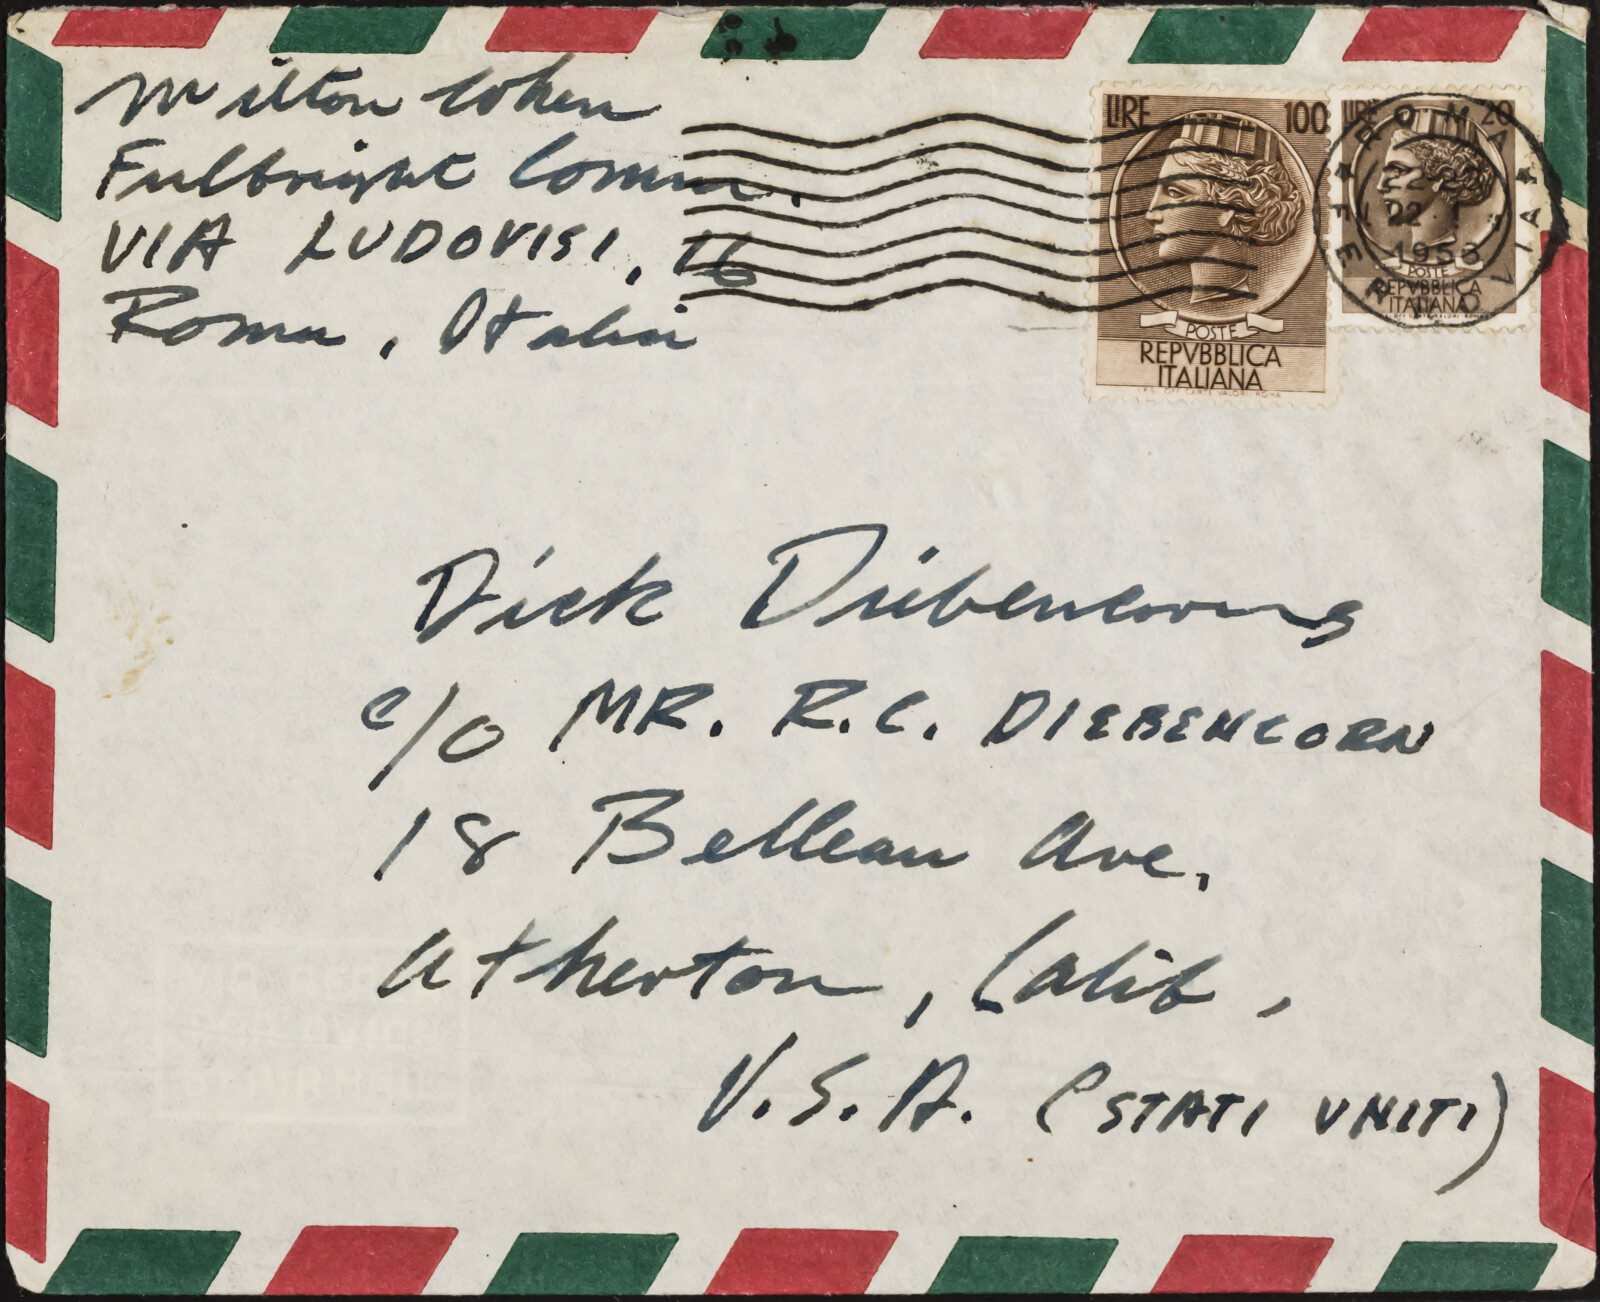 Milton Cohen
Fulbright Comm.
VIA LUDOVISI, 16
Roma, Italia
LIRE 100
POSTE
REPVBBLICA
ITALIANA
LIRE 20
POSTE
REPVBBLICA
ITALIANA
ROMA
FERROVIA
22-23
22 · 1
1958
Dick Diebencorn
c/o MR. R.C. DIEBENCORN
18 Belleau Ave.
Atherton, Calif,
U.S.A. (STATI UNITI)